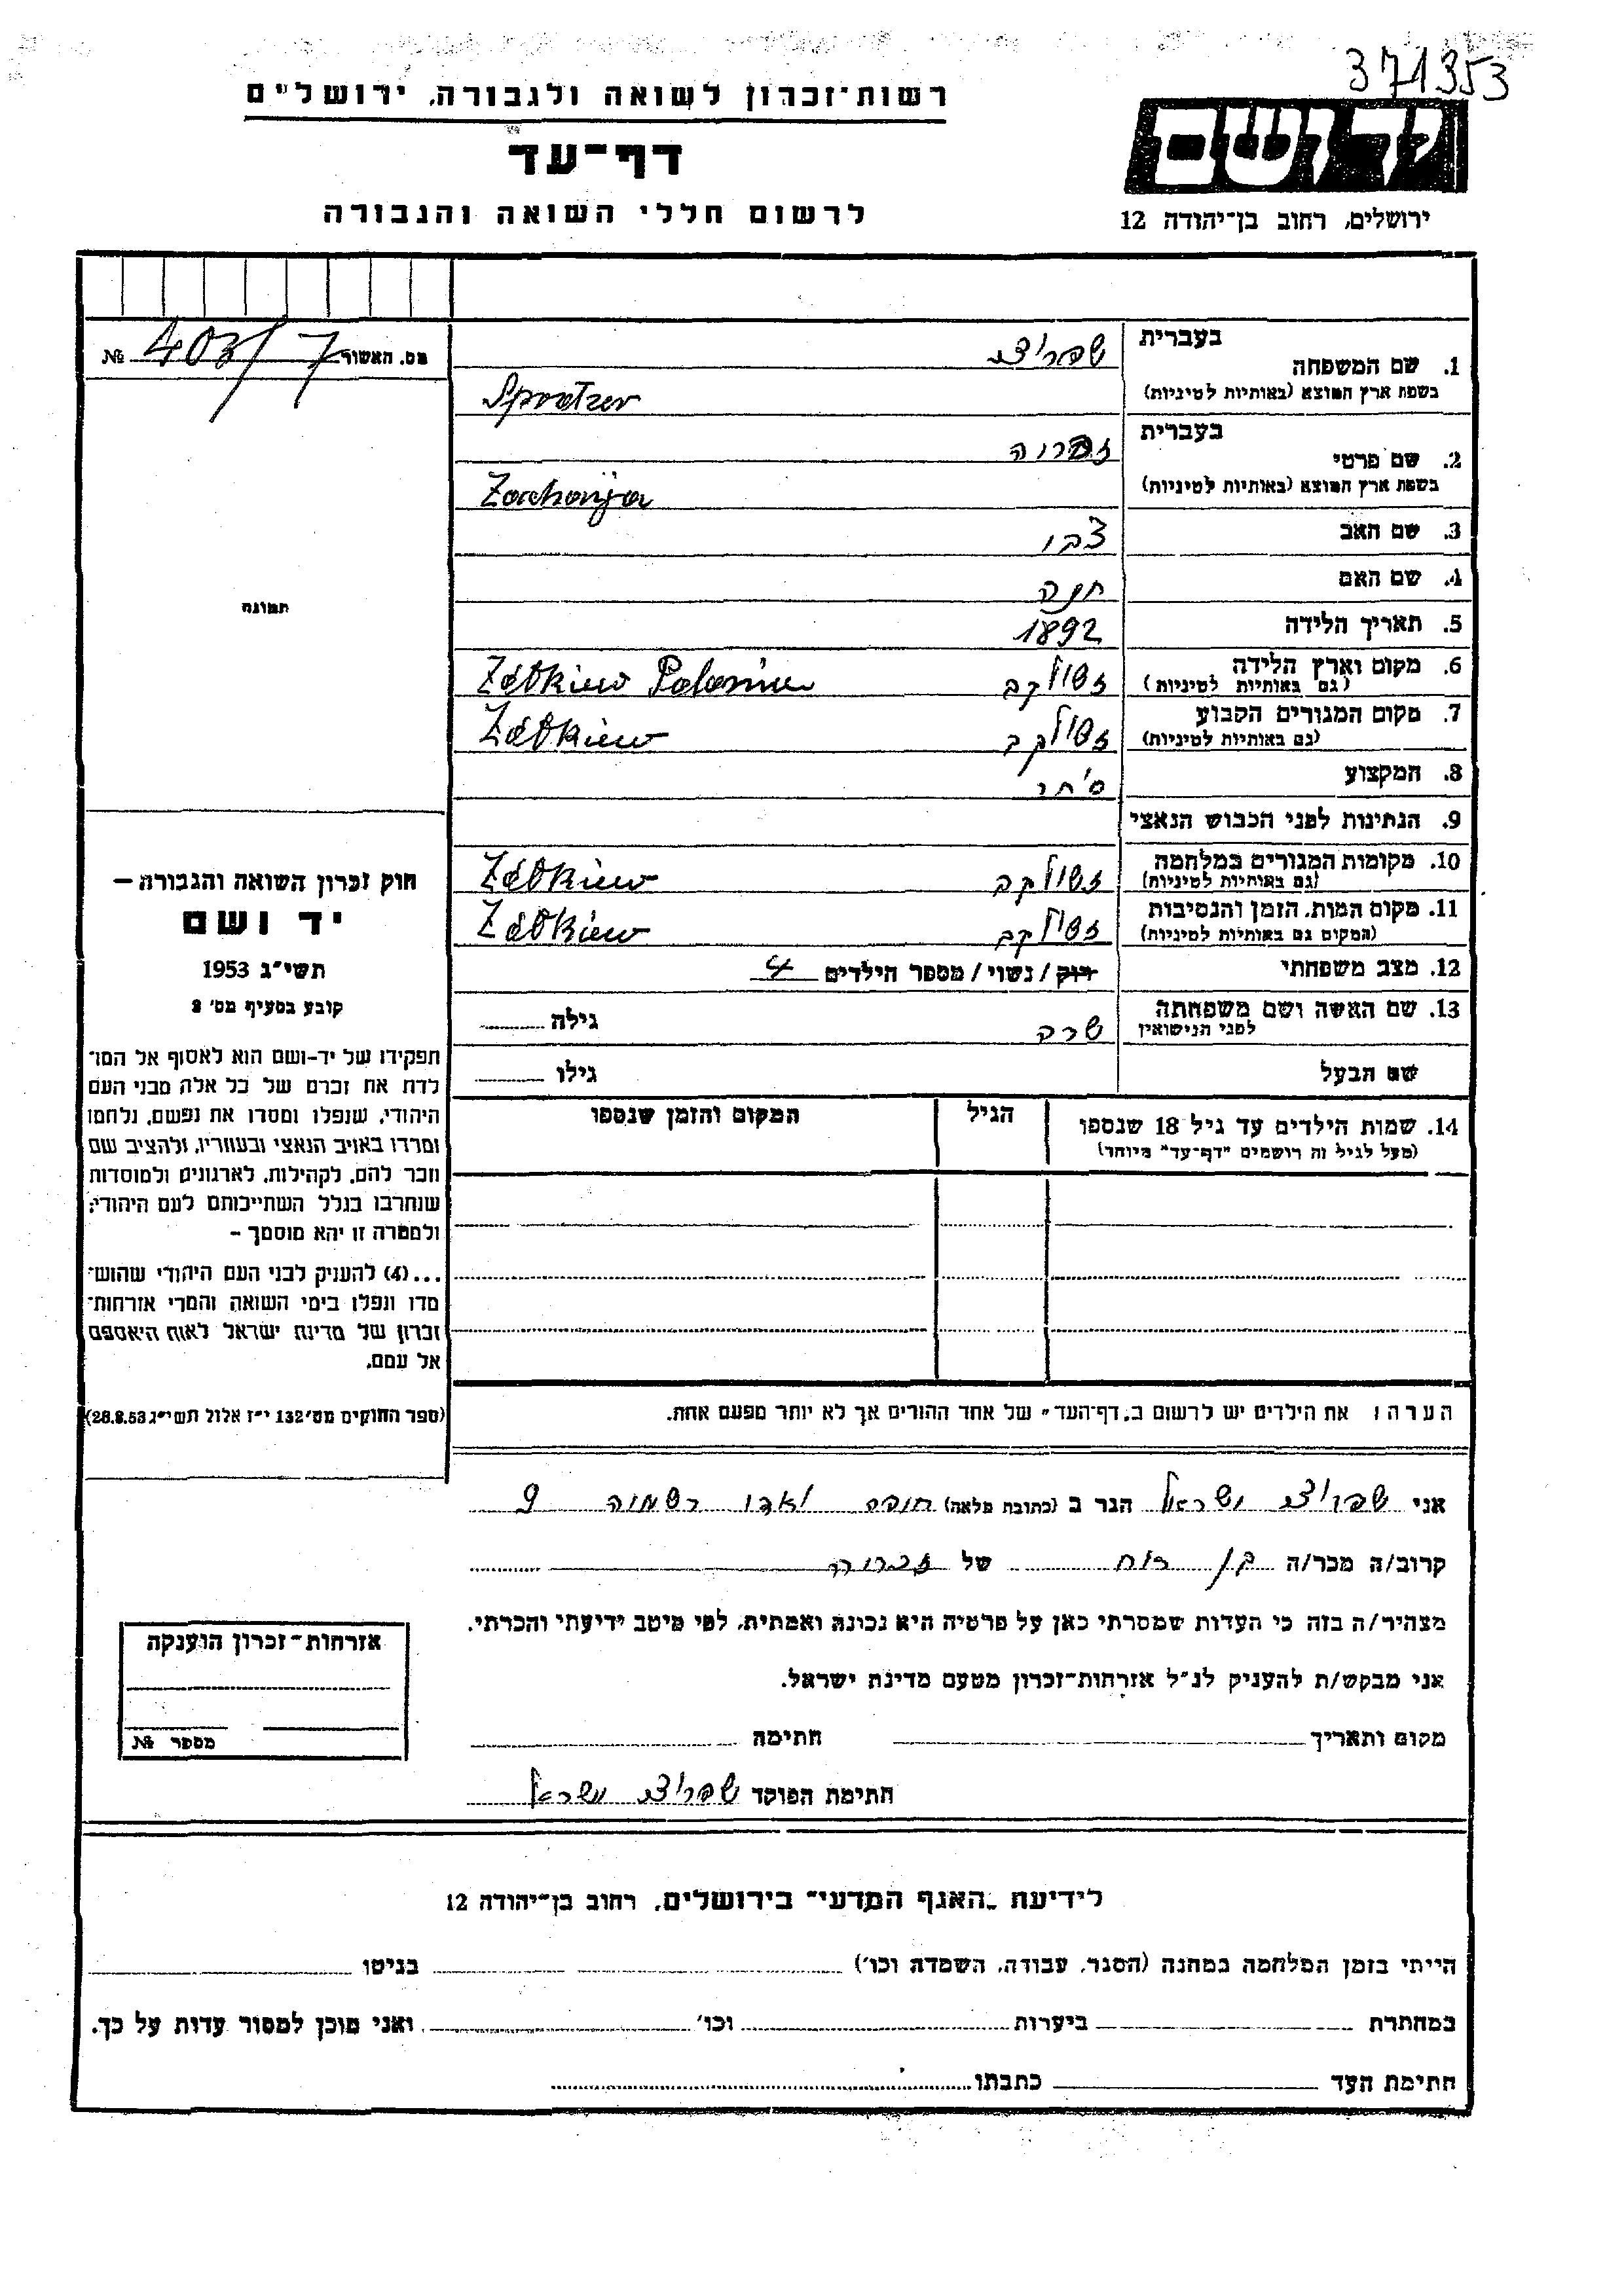 371353
רשות־זכרון לשואה ולגבורה, ירושלים
דף־עד
לרשום חללי השואה והגבורה
יד ושם
ירושלים, רחוב בן־יהודה 12
מס. האשור 403/7 №
בעברית
1. שם המשפחה
בשפת ארץ המוצא (באותיות לטיניות)
Spratzer
בעברית
2. שם פרטי
בשפת ארץ המוצא (באותיות לטיניות)
זכריה
Zacharija
3. שם האב
4. שם האם חנה
5. תאריך הלידה 1892
6. מקום וארץ הלידה
(גם באותיות לטיניות) Żółkiew
7. מקום המגורים הקבוע
(גם באותיות לטיניות) Żółkiew
8. המקצוע סוחר
9. הנתינות לפני הכבוש הנאצי
10. מקומות המגורים במלחמה
(גם באותיות לטיניות) Żółkiew
11. מקום המות, הזמן והנסיבות
(המקום גם באותיות לטיניות) Żółkiew
12. מצב משפחתי רווק / נשוי / מספר הילדים 4
13. שם האשה ושם משפחתה
לפני הנישואין שרה גילה
שם הבעל גילו
14. שמות הילדים עד גיל 18 שנספו
(מעל לגיל זה רושמים "דף־עד" מיוחד)
הגיל
המקום והזמן שנספו
תמונה
חוק זכרון השואה והגבורה —
יד ושם
תשי"ג 1953
קובע בסעיף מס'
תפקידו של יד-ושם הוא לאסוף אל המו־
לדת את זכרם של כל אלה מבני העם
היהודי, שנפלו ומסרו את נפשם, נלחמו
ומרדו באויב הנאצי ובעוזריו, ולהציב שם
וזכר להם, לקהילות, לארגונים ולמוסדות
שנחרבו בגלל השתייכותם לעם היהודי;
ולמטרה זו יהא מוסמך —
...(4) להעניק לבני העם היהודי שהוש־
מדו ונפלו בימי השואה והמרי אזרחות־
זכרון של מדינת ישראל לאות היאספם
אל עמם.
(ספר החוקים מס' 132 י"ז אלול תשי"ג 28.8.53)
הערה: את הילדים יש לרשום ב"דף־העד" של אחד ההורים אך לא יותר מפעם אחת.
אני ישראל הגר ב (כתובת מלאה) 9
קרוב/ה מכר/ה בן אח של זכריה
מצהיר/ה בזה כי העדות שמסרתי כאן על פרטיה היא נכונה ואמתית, לפי מיטב ידיעתי והכרתי.
אני מבקש/ת להעניק לנ"ל אזרחות־זכרון מטעם מדינת ישראל.
מקום ותאריך חתימה
חתימת הפוקד ישראל
אזרחות־זכרון הוענקה
מספר №
לידיעת "האגף המדעי" בירושלים, רחוב בן־יהודה 12
הייתי בזמן המלחמה במחנה (הסגר, עבודה, השמדה וכו') בגיטו
במחתרת ביערות וכו' ואני מוכן למסור עדות על כך.
חתימת העד כתבתו